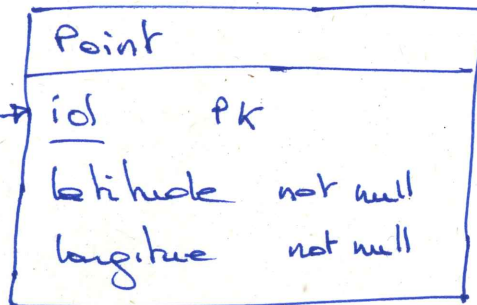 Point
id PK
latitude not null
longitue not null